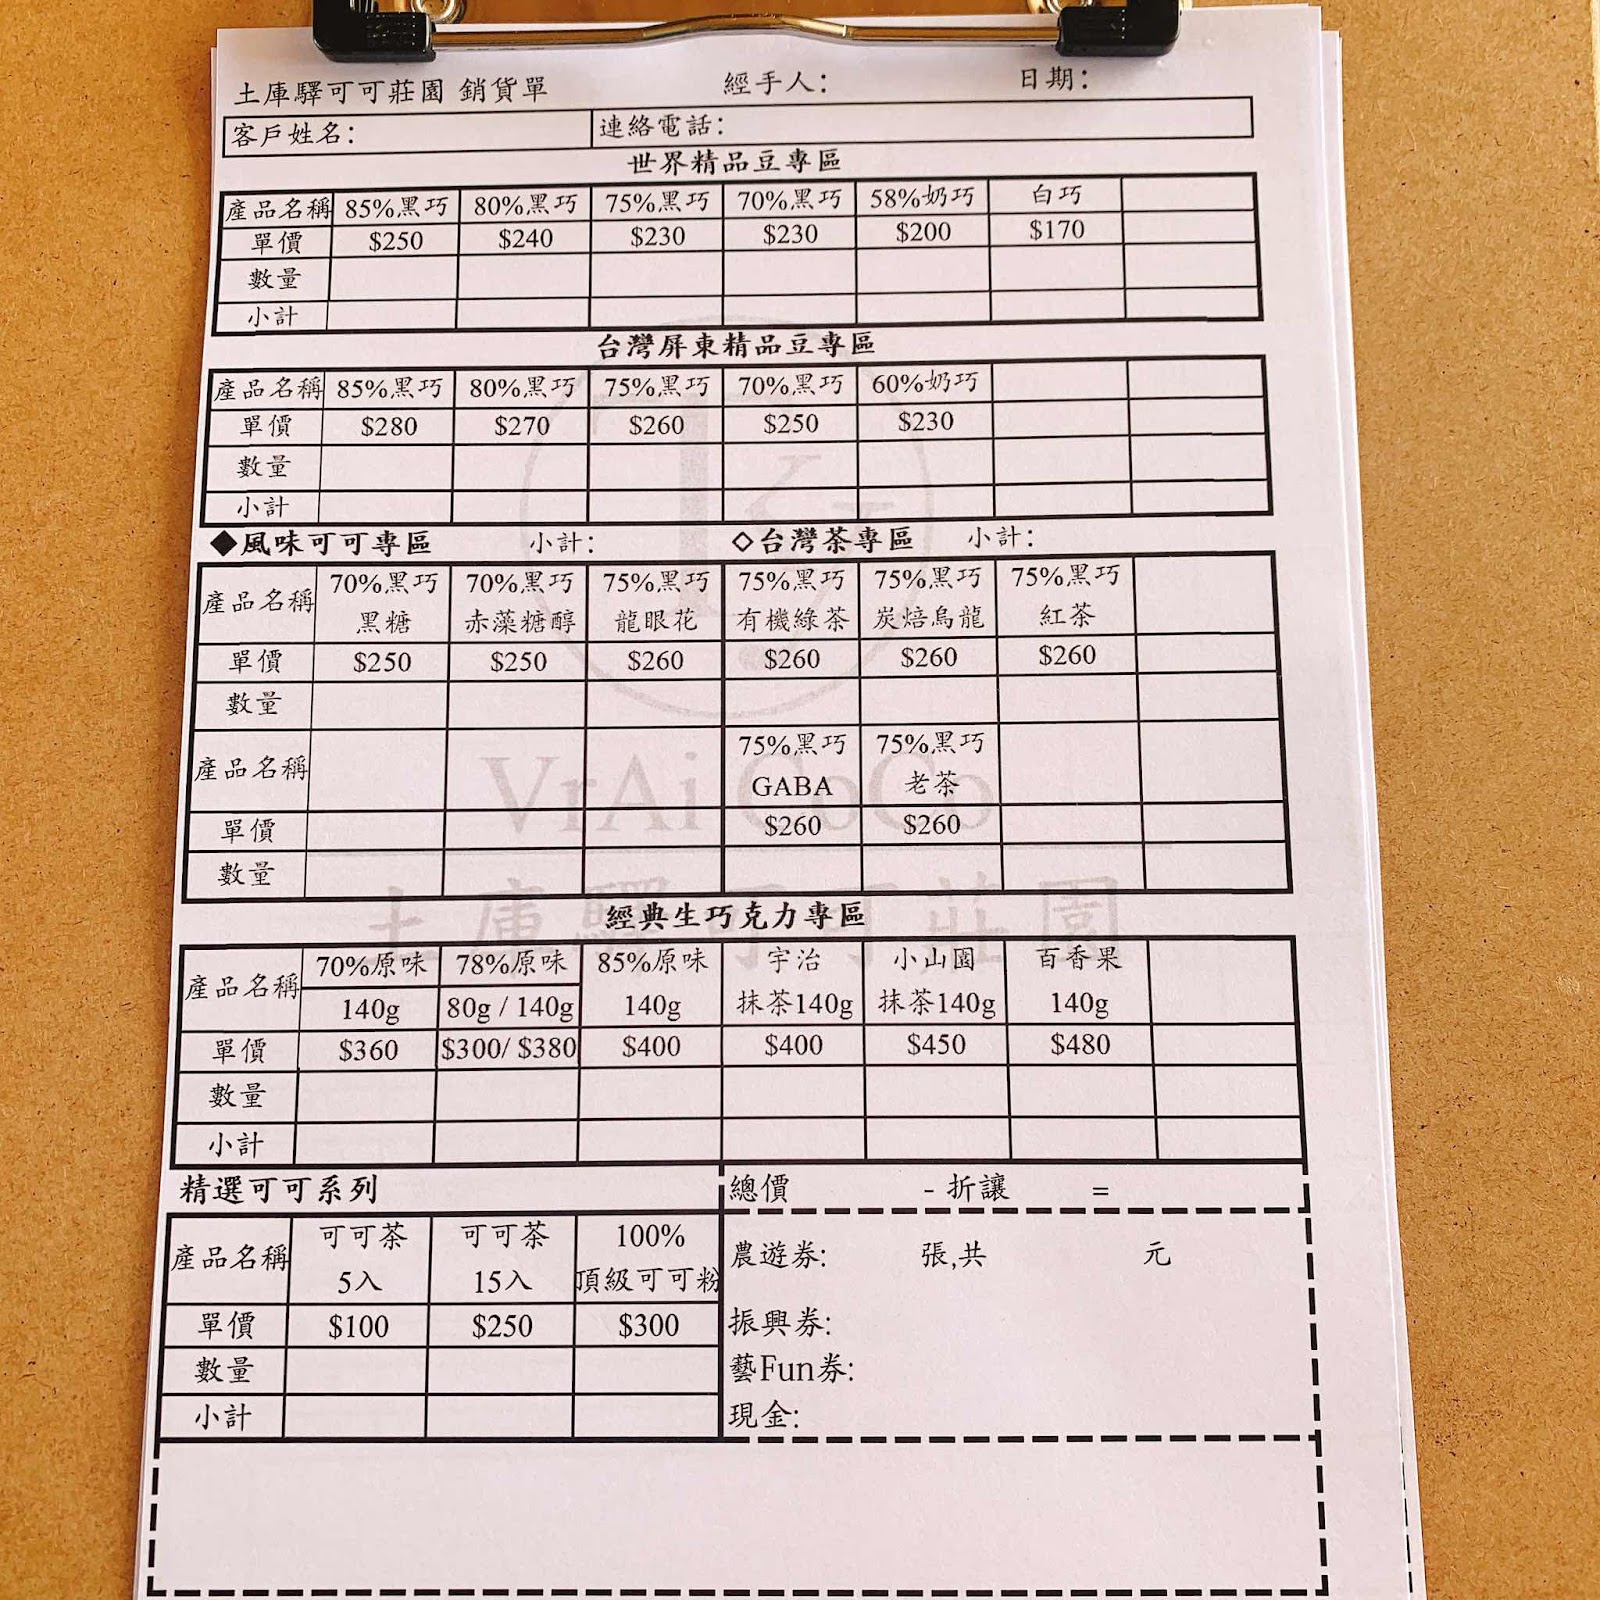 土庫驛可可莊園 銷貨單 經手人: 日期:
客戶姓名: 連絡電話:
世界精品豆專區
產品名稱 85%黑巧 80%黑巧 75%黑巧 70%黑巧 58%奶巧 白巧
單價 $250 $240 $230 $230 $200 $170
數量
小計
台灣屏東精品豆專區
產品名稱 85%黑巧 80%黑巧 75%黑巧 70%黑巧 60%奶巧
單價 $280 $270 $260 $250 $230
數量
小計
◆風味可可專區 小計: ◇台灣茶專區 小計:
產品名稱 70%黑巧 70%黑巧 75%黑巧 75%黑巧 75%黑巧 75%黑巧
黑糖 赤藻糖醇 龍眼花 有機綠茶 炭焙烏龍 紅茶
單價 $250 $250 $260 $260 $260 $260
數量
產品名稱 75%黑巧 75%黑巧
GABA 老茶
VrAi CoCo
單價 $260 $260
數量
土庫驛可可莊園
經典生巧克力專區
產品名稱 70%原味 78%原味 85%原味 宇治 小山園 百香果
140g 80g / 140g 140g 抹茶140g 抹茶140g 140g
單價 $360 $300/ $380 $400 $400 $450 $480
數量
小計
精選可可系列 總價 - 折讓 =
產品名稱 可可茶 可可茶 100%
5入 15入 頂級可可粉
單價 $100 $250 $300
數量
小計
農遊券: 張,共 元
振興券:
藝Fun券:
現金: